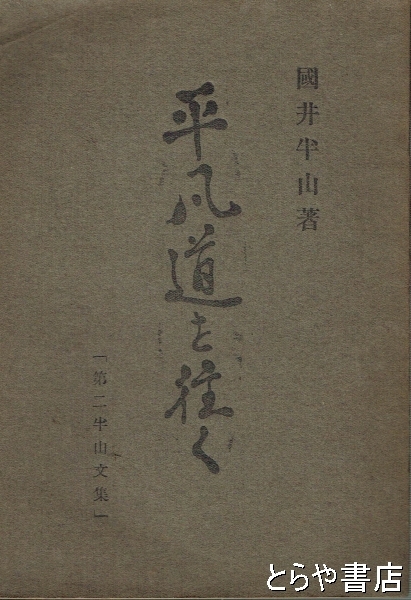 國井半山著
平凡道を往く
「第二半山文集」
とらや書店